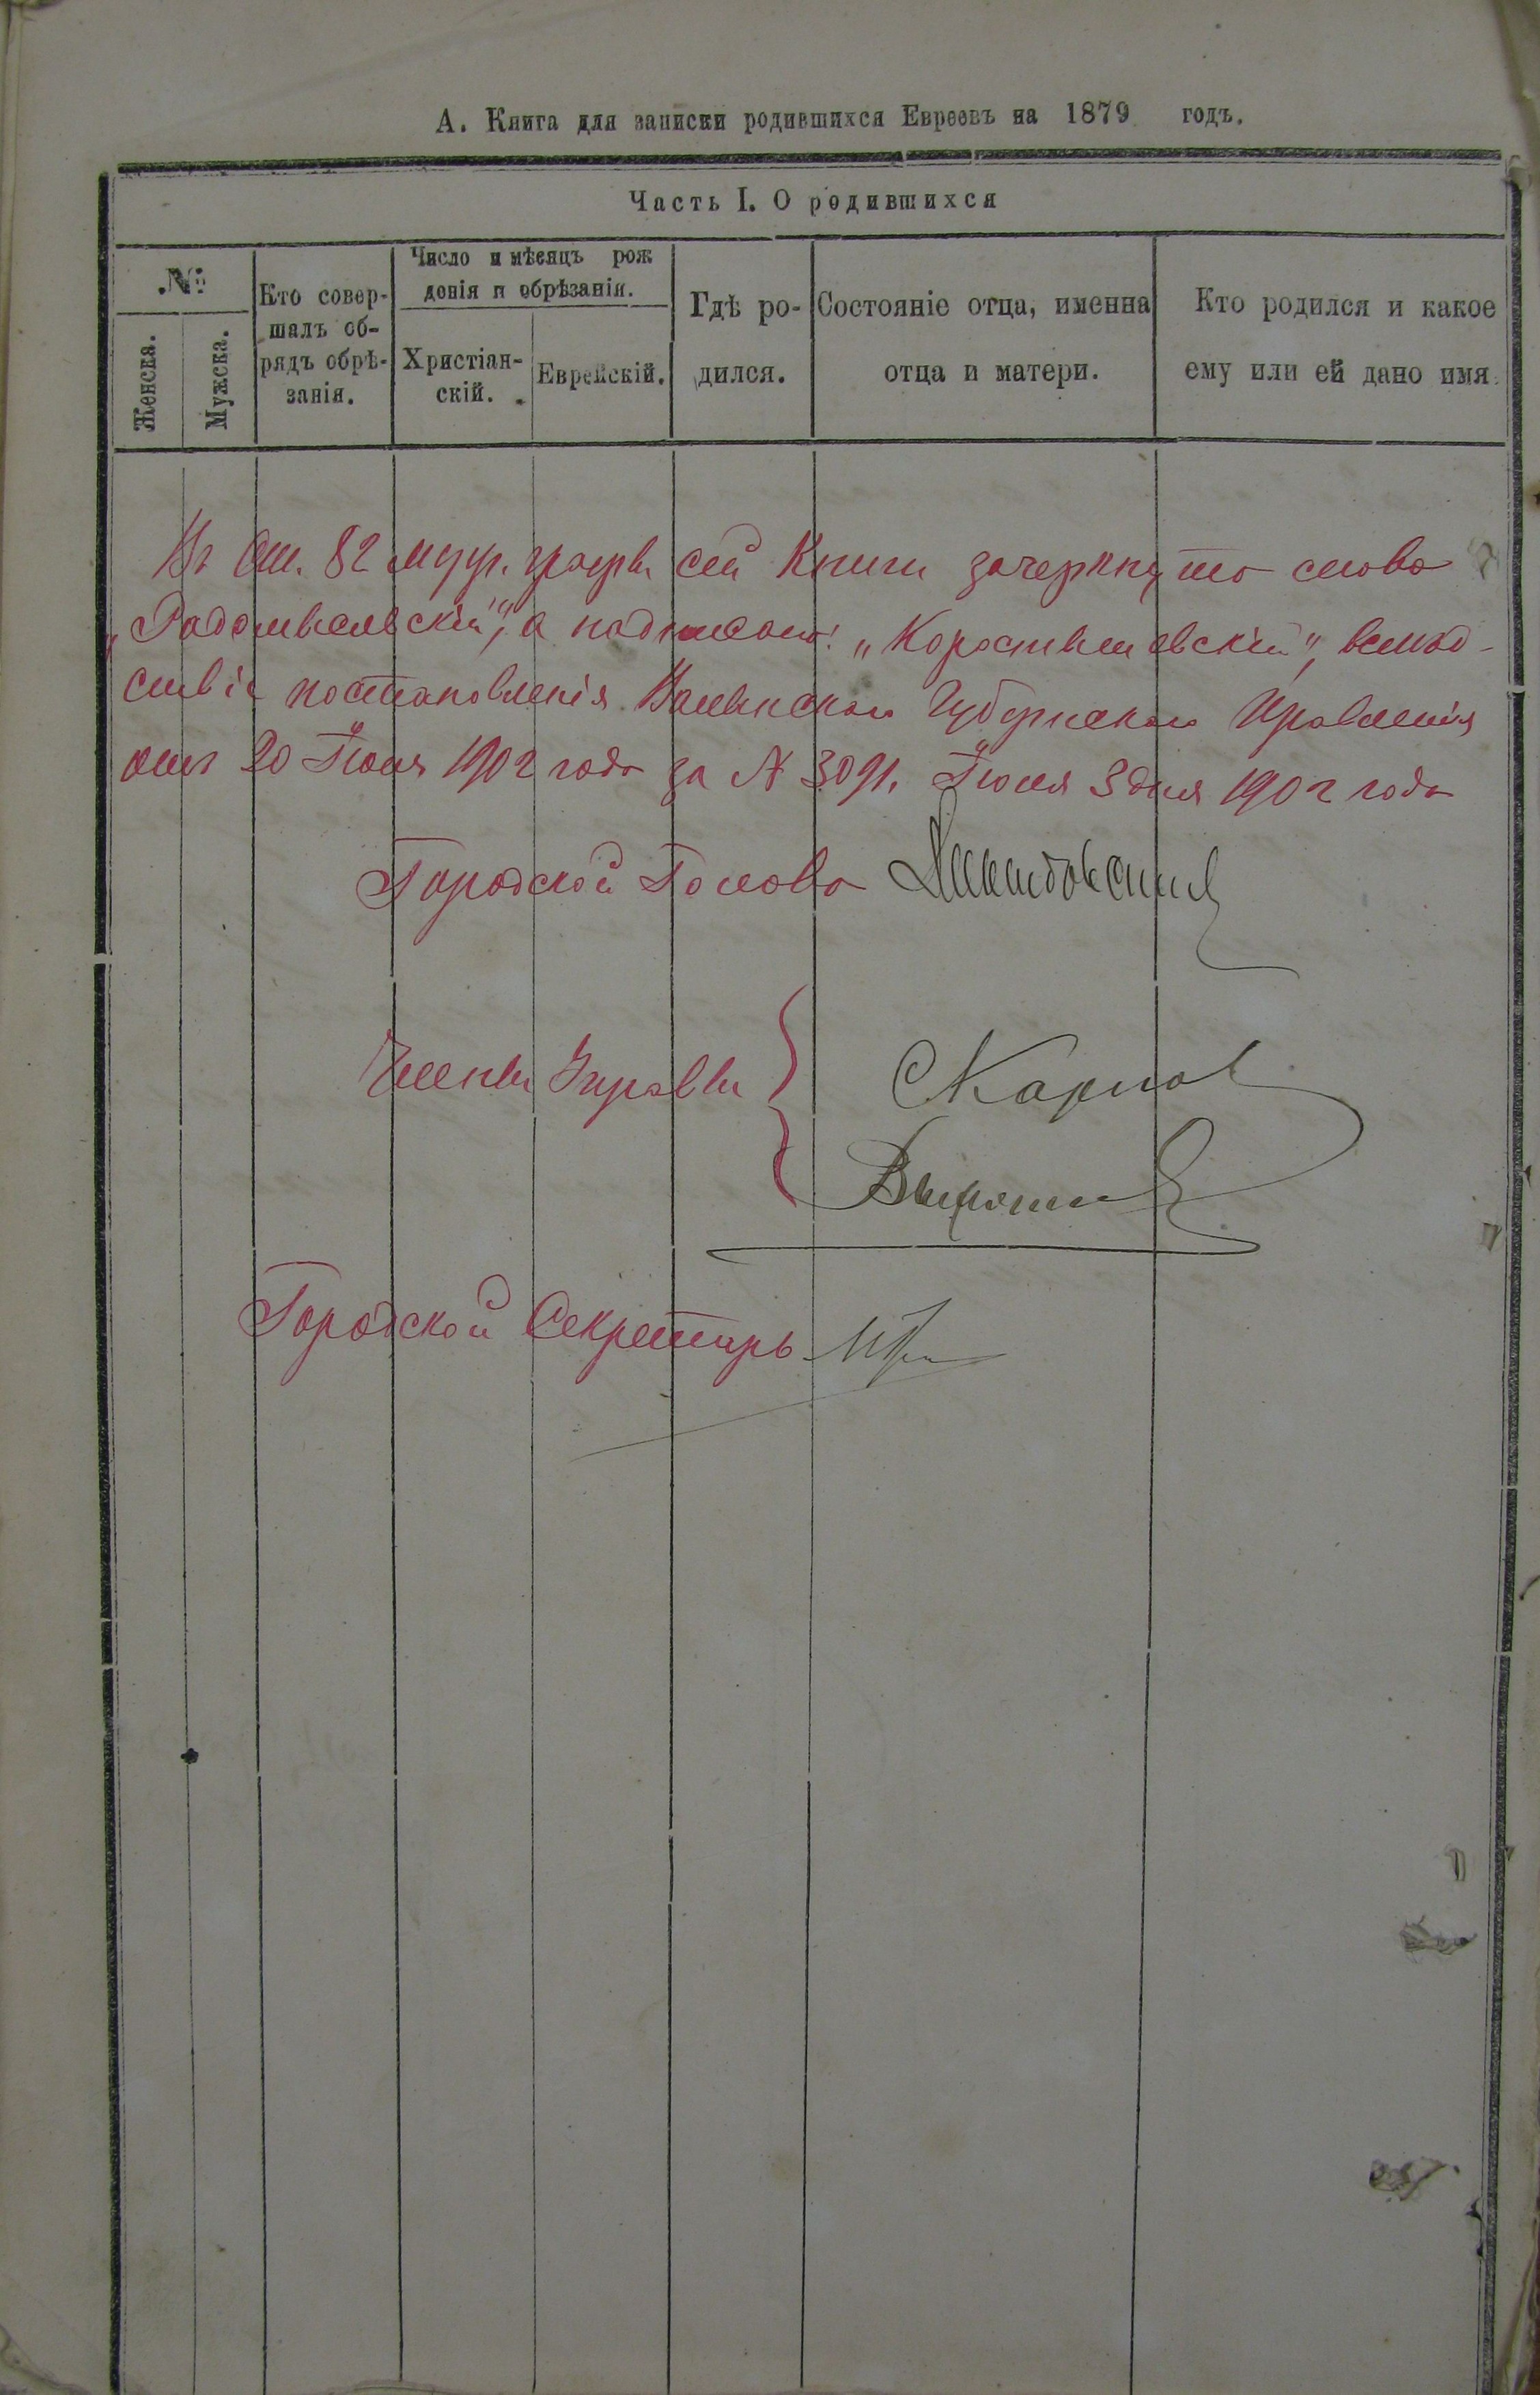 А. Книга для записки родившихся Евреевъ на 1879 годъ.
Часть I. О родившихся
№
Женска.
Мужска.
Кто совер-
шалъ об-
рядъ обрѣ-
занія.
Число и мѣсяцъ рож
денія и обрѣзанія.
Христіан-
скій.
Еврейскій.
Гдѣ ро-
дился.
Состояніе отца, именна
отца и матери.
Кто родился и какое
ему или ей дано имя.
Въ ст. 82 муж. графы сей Книги зачеркнуто слово
„Радомысльскій", а надписано: „Коростышевскій", вслѣд-
ствіе постановленія Волынскаго Губернскаго Правленія
отъ 20 Іюня 1902 года за № 3091. Іюля 3 дня 1902 года
Городской Голова
Члены Управы
СКарпов
Городской Секретарь